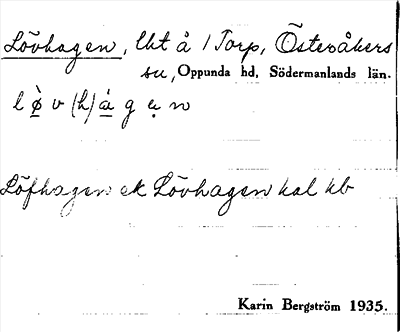 Lövhagen, lht å 1 Torp, Österåkers
sn, Oppunda hd, Södermanlands län.
l ø̀ v (h) á g ę n
Löfhagen ek Lövhagen hal kb
Karin Bergström 1935.